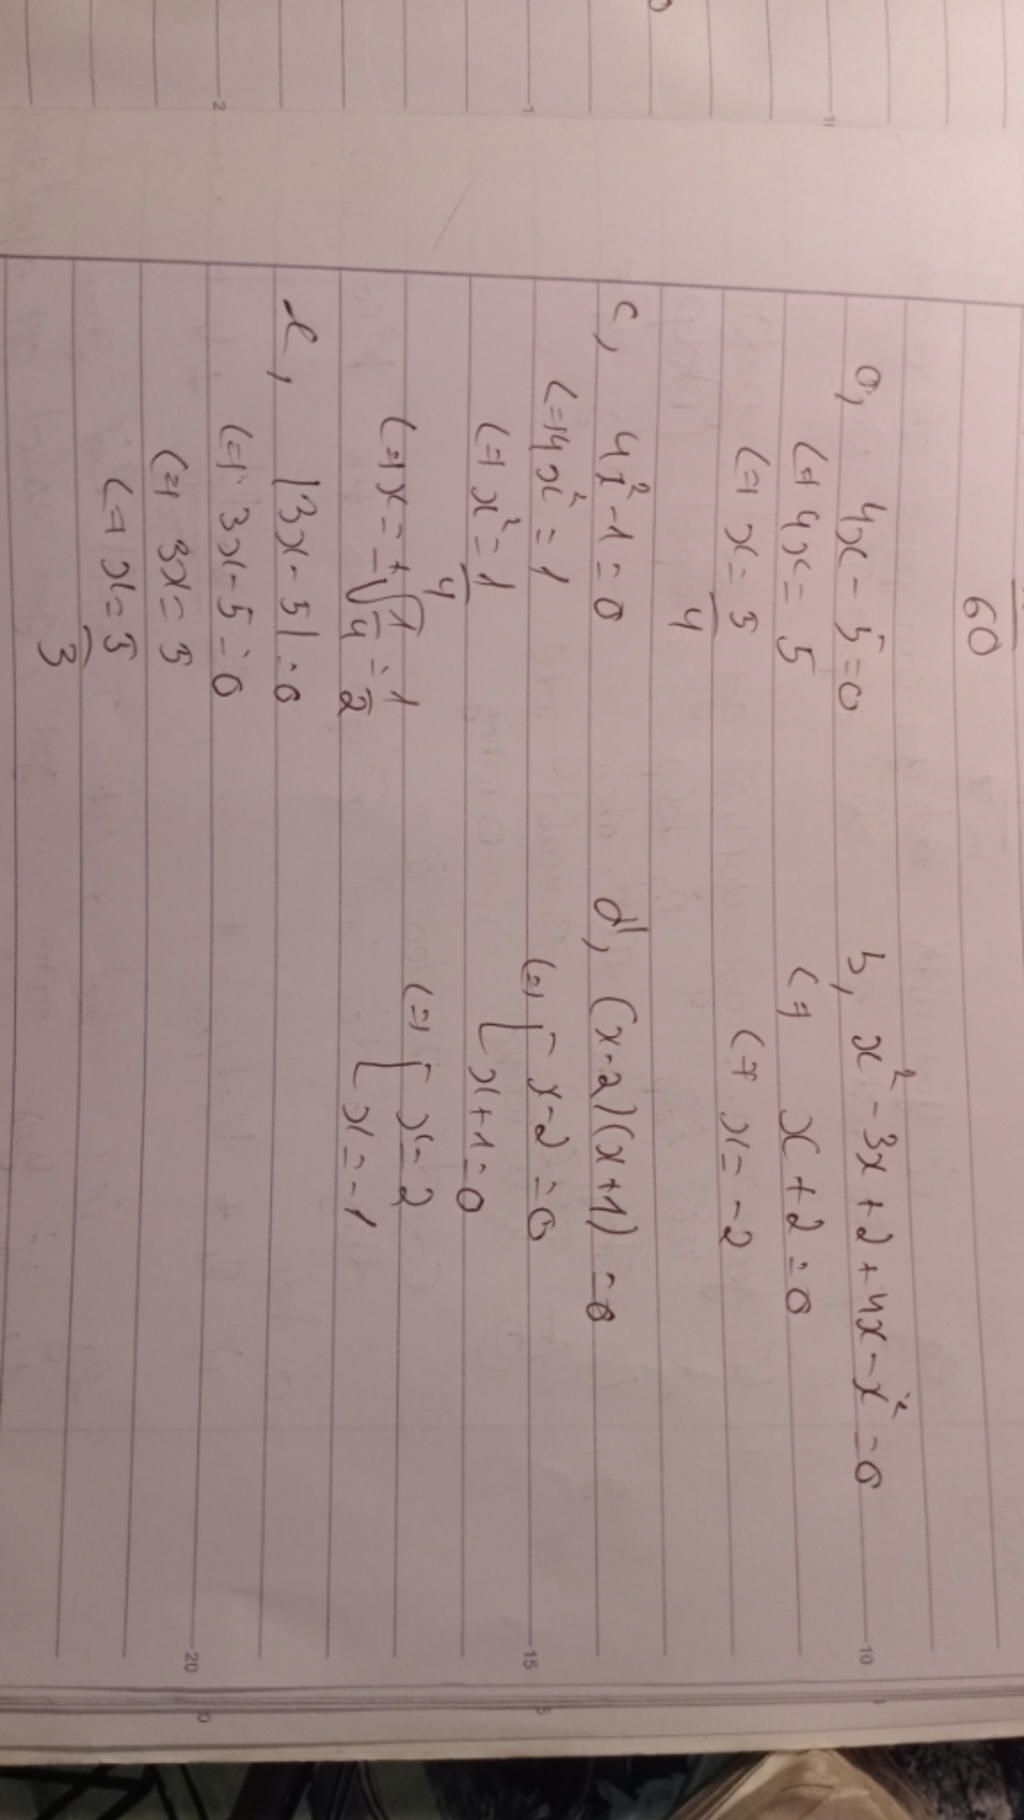 60
a, 4x - 5 = 0
<=> 4x = 5
<=> x = 5/4
b, x² - 3x + 2 + 4x - x² = 0
<=> x + 2 = 0
<=> x = -2
c, 4x² - 1 = 0
<=> 4x² = 1
<=> x² = 1/4
<=> x = ±√1/4 = 1/2
d, (x - 2)(x + 1) = 0
<=> [ x - 2 = 0
x + 1 = 0
<=> [ x = 2
x = -1
e, |3x - 5| = 0
<=> 3x - 5 = 0
<=> 3x = 5
<=> x = 5/3
10
15
20